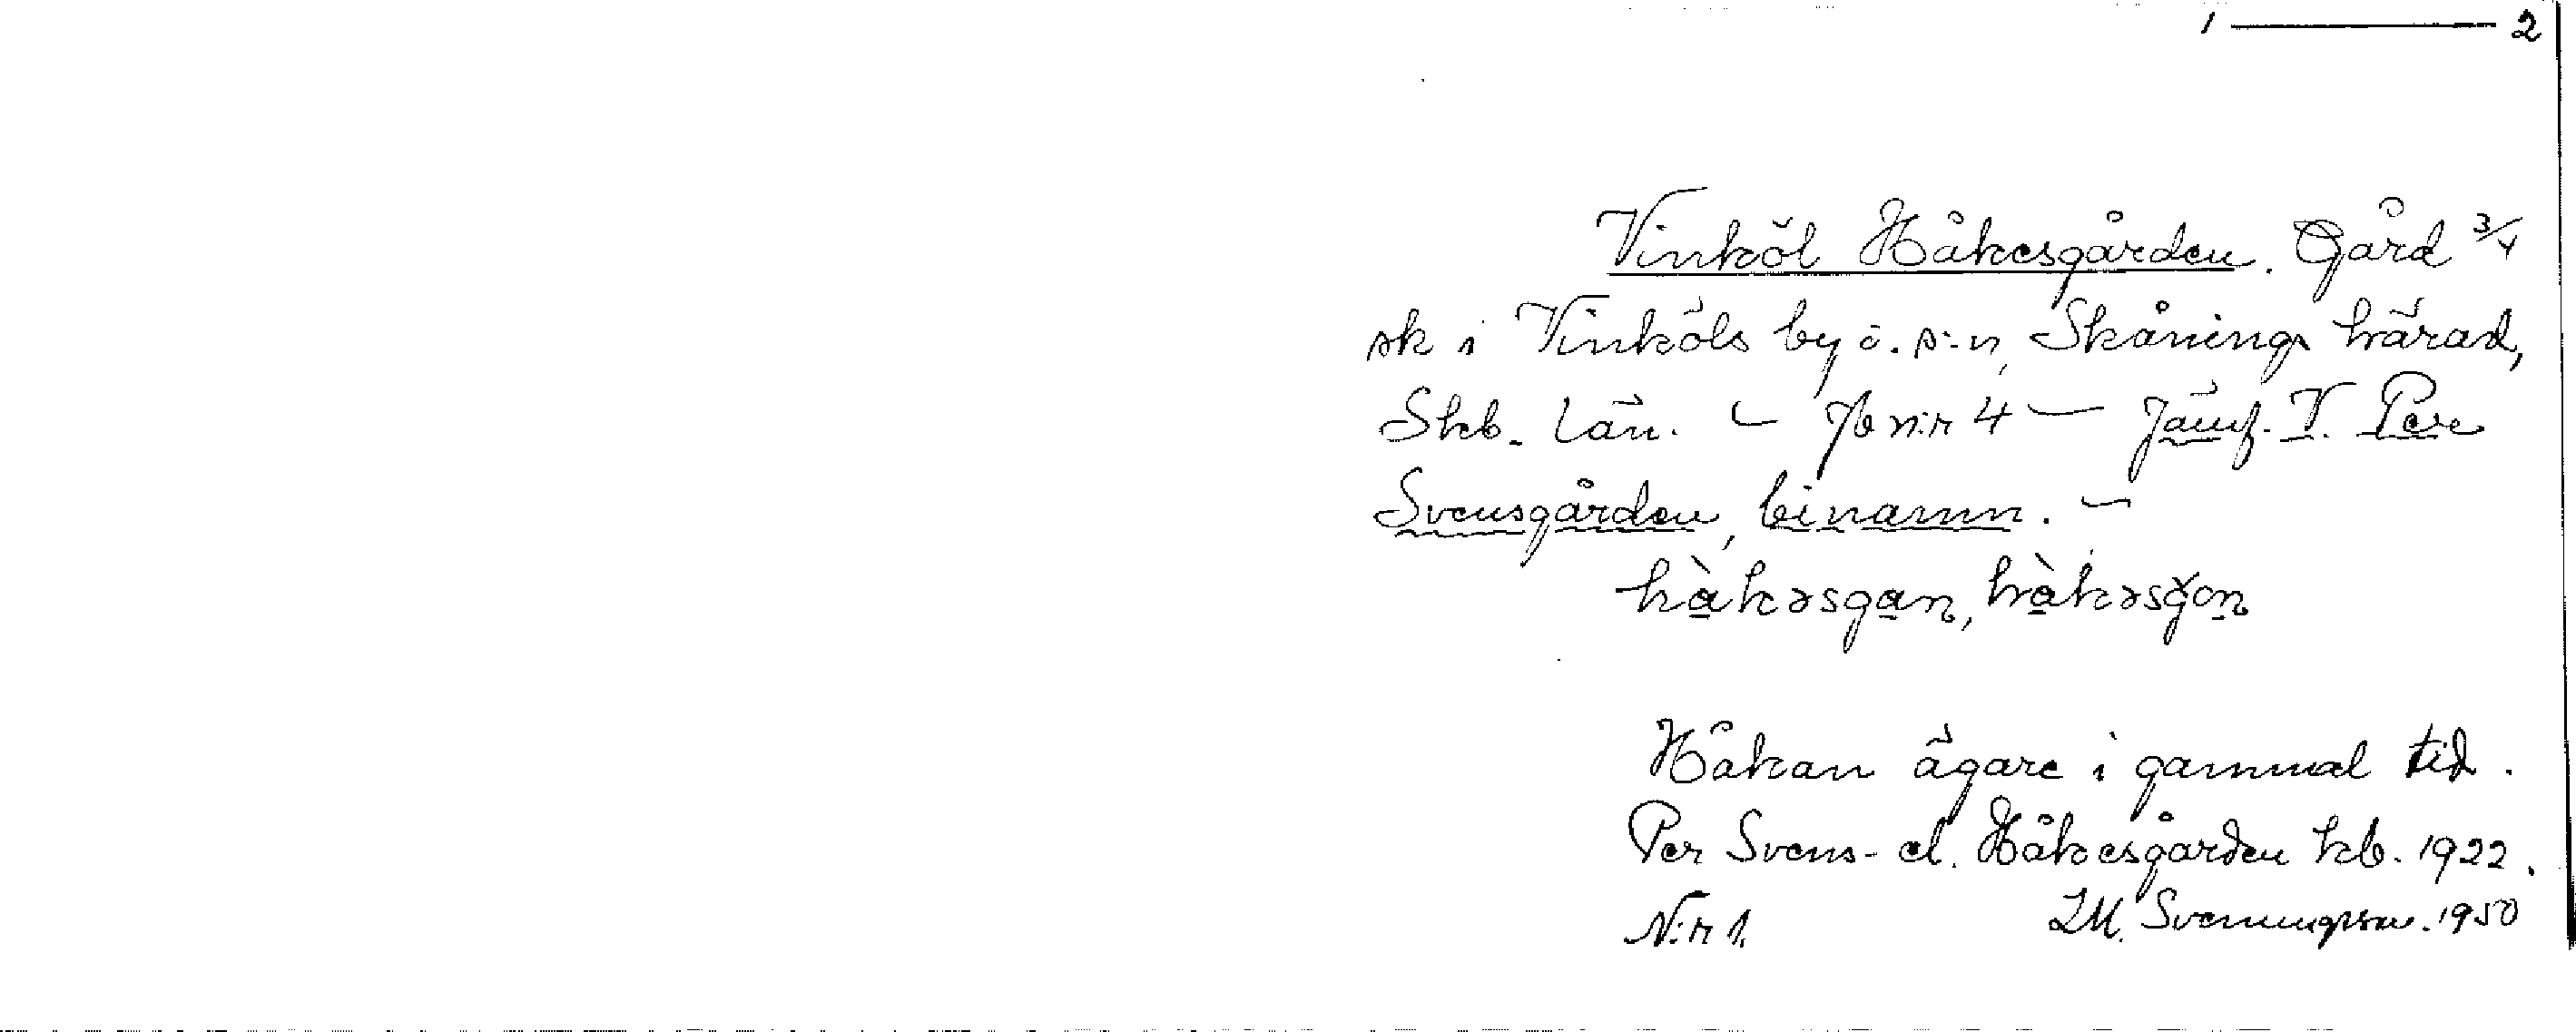 1 — 2
Vinköl Håkesgården. Gård 3/4
sk i Vinköls by o. s:n, Skånings härad,
Skb. län. — Jb n:r 4 — Jämf. V. Per
Svensgården, binamn. —
hàkəsgan, hàkəsgon
Håkan ägare i gammal tid.
Per Svens- el. Håkesgården kb. 1922.
N:r 1. I.M. Svenungsson. 1950